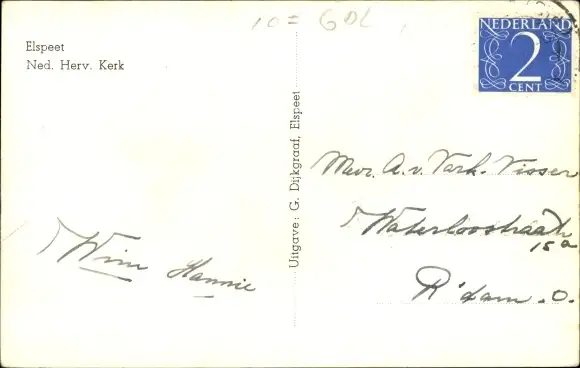 10 = GDL
NEDERLAND
2
CENT
Elspeet
Ned. Herv. Kerk
Uitgave: G. Dijkgraaf, Elspeet
Mevr. A. v. Vark-Visser
Waterloostraat
15a
R'dam.O.
Wim Hannie